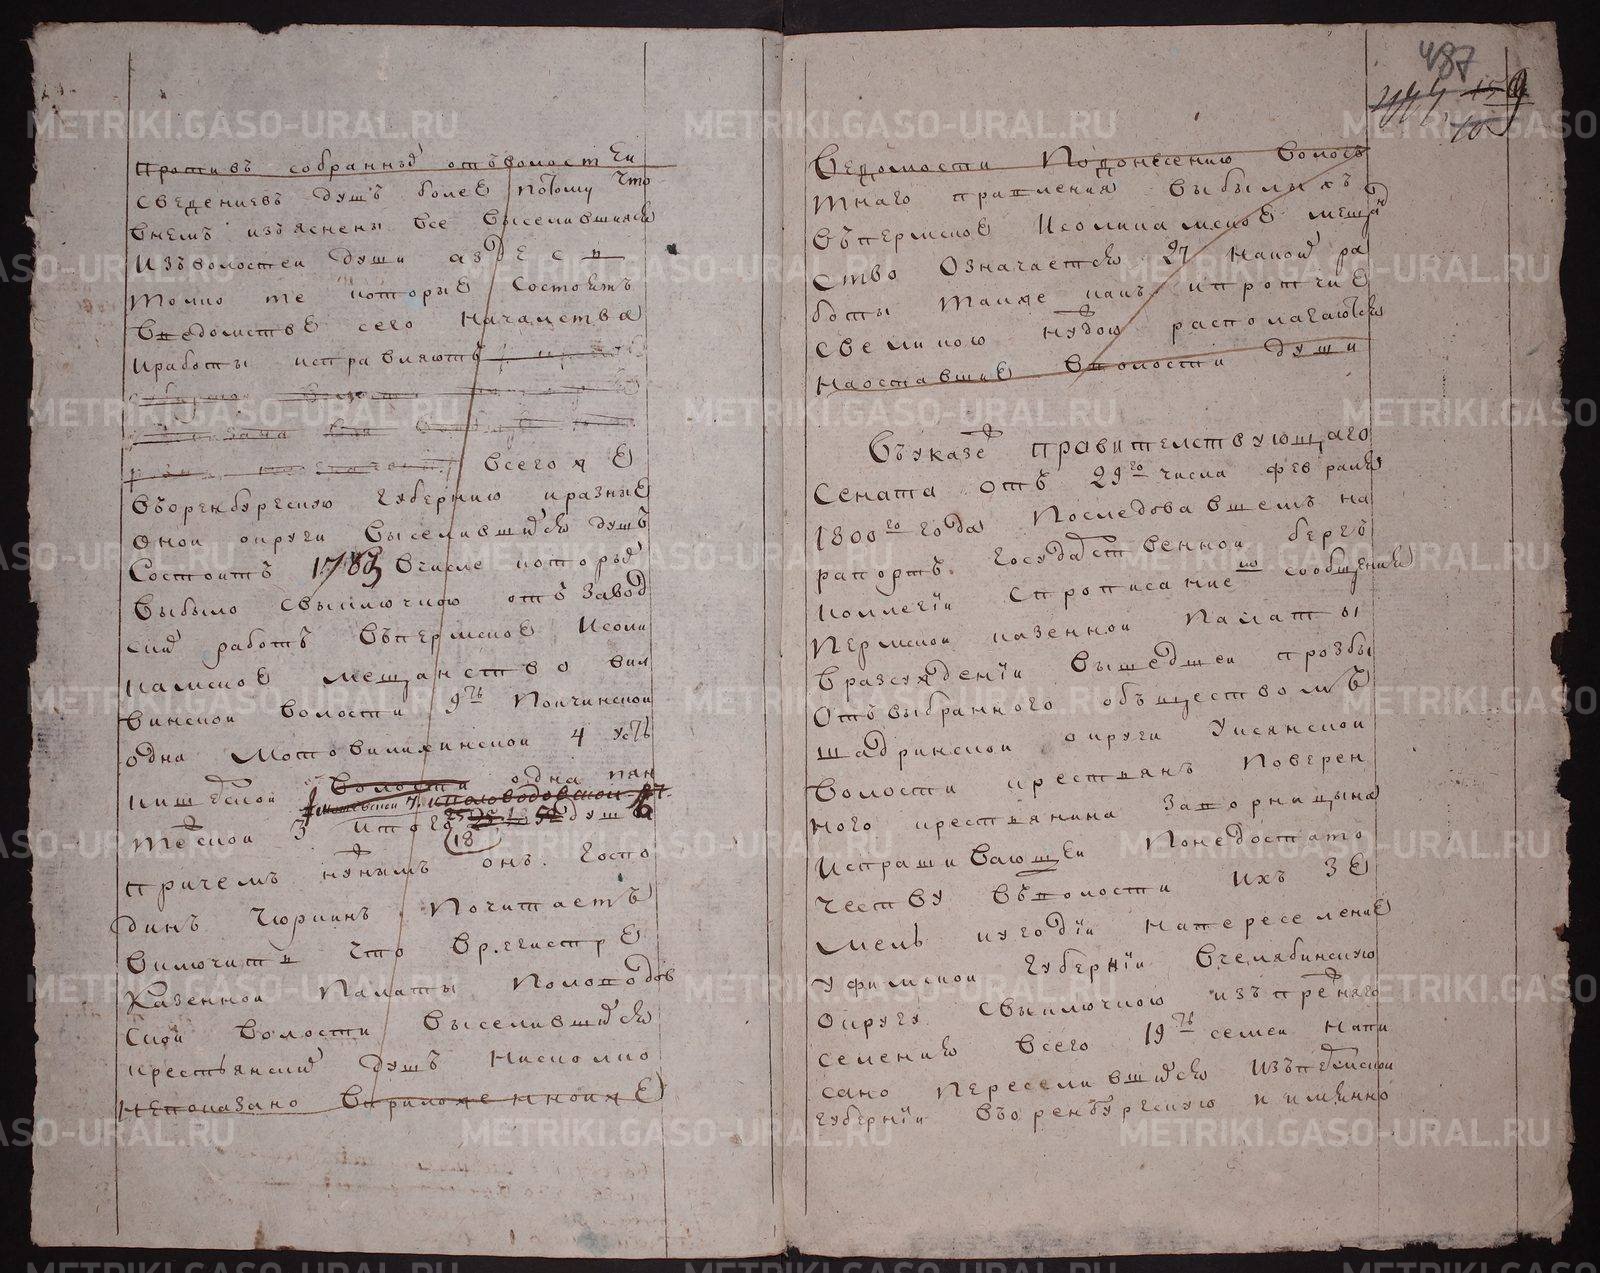 противъ собранныхъ отъ волостеи
сведениевъ душъ более потому что
внемъ изъяснены все выселившияся
изъ волостеи души а здесь
толко те которые состоятъ
введомстве сего началства
и работы исправляютъ
всего же
въ оренбурскую губернию и разные
онои округи выселившихся душъ
состоитъ 1783 вчисле которыхъ
выбыло свыключкою отъ завод
скихъ работъ въ пермское и соли
камское мещанство вил
винскои волости 9ть
одна мотовилихинскои 4 усть
кишерскои волости одна пян
тежскои 3 итого 18 душъ
причемъ нужнымъ онъ господинъ
динъ Чюркинъ почитаетъ
включить что в регистре
Казеннои палаты половодов
скои волости выселившихся
крестьянскихъ душъ нисколко
непоказано в приложенноиже
487
ведомости по донесению волос
тнаго правления выбылыхъ
въ пермское и соликамское мещан
ство означается 27 накоихъ ра
боты также какъ и протчие
свеликою нуждою располагаются
на оставшие вволости души
Въ указе правителствующаго
сената отъ 29го числа февраля
1800го года последовавшемъ на
рапортъ государственнои бергъ
коллегии спрописаниемъ сообщения
пермскои казеннои палаты
вразсуждении вышедшеи прозбы
отъ выбранного объществомъ
шадринскои округи уксянскои
волости крестьянъ поверен
ного крестьянина Запорницына
испрашивающеи понедостато
честву въ волости ихъ зе
мель и угодии на переселение
уфимскои губернии вчелябинскую
округу свыключкою изъ прежняго
селения всего 19ть семеи напи
сано переселившихся изъ пермскои
губернии въ оренбурскую и имянно
METRIKI.GASO-URAL.RU